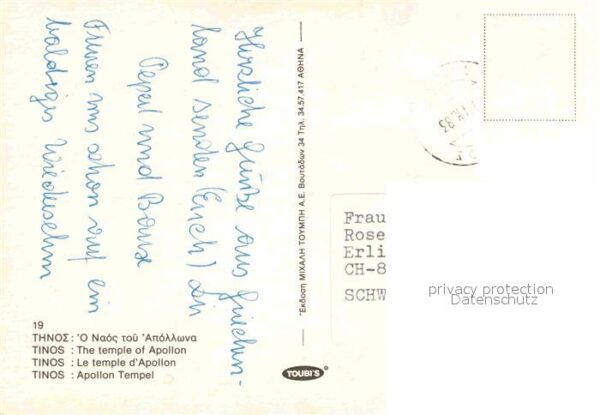 Herzliche Grüße aus Griechen-
land senden (Euch) Dir
und
Freuen uns schon auf ein
baldiges Wiedersehen
19
ΤΗΝΟΣ : Ὁ Ναός τοῦ Ἀπόλλωνα
TINOS : The temple of Apollon
TINOS : Le temple d'Apollon
TINOS : Apollon Tempel
Ἔκδοση ΜΙΧΑΛΗ ΤΟΥΜΠΗ Α.Ε. Βουτάδων 34 Τηλ. 34.57.417 ΑΘΗΝΑ
TOUBI'S
Frau
Rose
Erli
CH-8
SCHW
privacy protection
Datenschutz